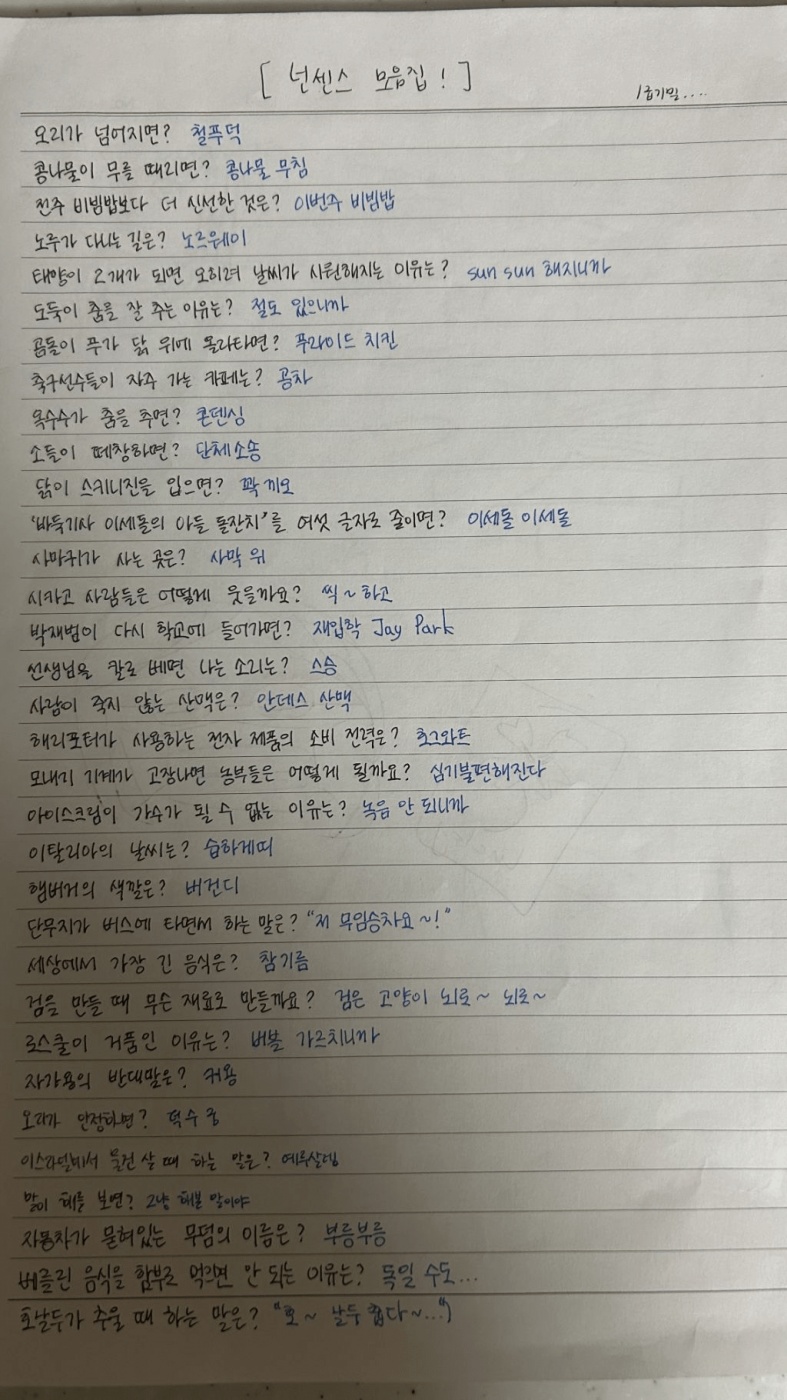 [ 넌센스 모음집 ! ]
1급기밀....
오리가 넘어지면? 철푸덕
콩나물이 무를 때리면? 콩나물 무침
전주 비빔밥보다 더 신선한 것은? 이번주 비빔밥
노루가 다니는 길은? 노르웨이
태양이 2개가 되면 오히려 날씨가 시원해지는 이유는? sun sun 해지니까
도둑이 춤을 잘 추는 이유는? 절도 있으니까
곰돌이 푸가 닭 위에 올라타면? 푸라이드 치킨
축구선수들이 자주 가는 카페는? 공차
옥수수가 춤을 추면? 콘덴싱
소들이 떼창하면? 단체소송
닭이 스키니진을 입으면? 꽉끼오
'바둑기사 이세돌의 아들 돌잔치'를 여섯 글자로 줄이면? 이세돌 이세돌
사마귀가 사는 곳은? 사막 위
시카고 사람들은 어떻게 웃을까요? 씩~하고
박재범이 다시 학교에 들어가면? 재입학 Jay Park
선생님을 칼로 베면 나는 소리는? 스승
사람이 죽지 않는 산맥은? 안데스 산맥
해리포터가 사용하는 전자 제품의 소비 전력은? 호그와트
모내기 기계가 고장나면 농부들은 어떻게 될까요? 심기불편해진다
아이스크림이 가수가 될 수 없는 이유는? 녹음 안 되니까
이탈리아의 날씨는? 습하게띠
햄버거의 색깔은? 버건디
단무지가 버스에 타면서 하는 말은? "저 무임승차요~!"
세상에서 가장 긴 음식은? 참기름
검을 만들 때 무슨 재료로 만들까요? 검은 고양이 뇌로~ 뇌로~
로스쿨이 거품인 이유는? 버블 가르치니까
자가용의 반대말은? 커용
오리가 안정하면? 덕수궁
이스라엘에서 물건 살 때 하는 말은? 예루살렘
말이 헤를 보면? 그냥 해본 말이야
자동차가 묻혀있는 무덤의 이름은? 부릉부릉
베를린 음식을 함부로 먹으면 안 되는 이유는? 독일 수도...
호날두가 추울 때 하는 말은? "호~ 날두 춥다~...")